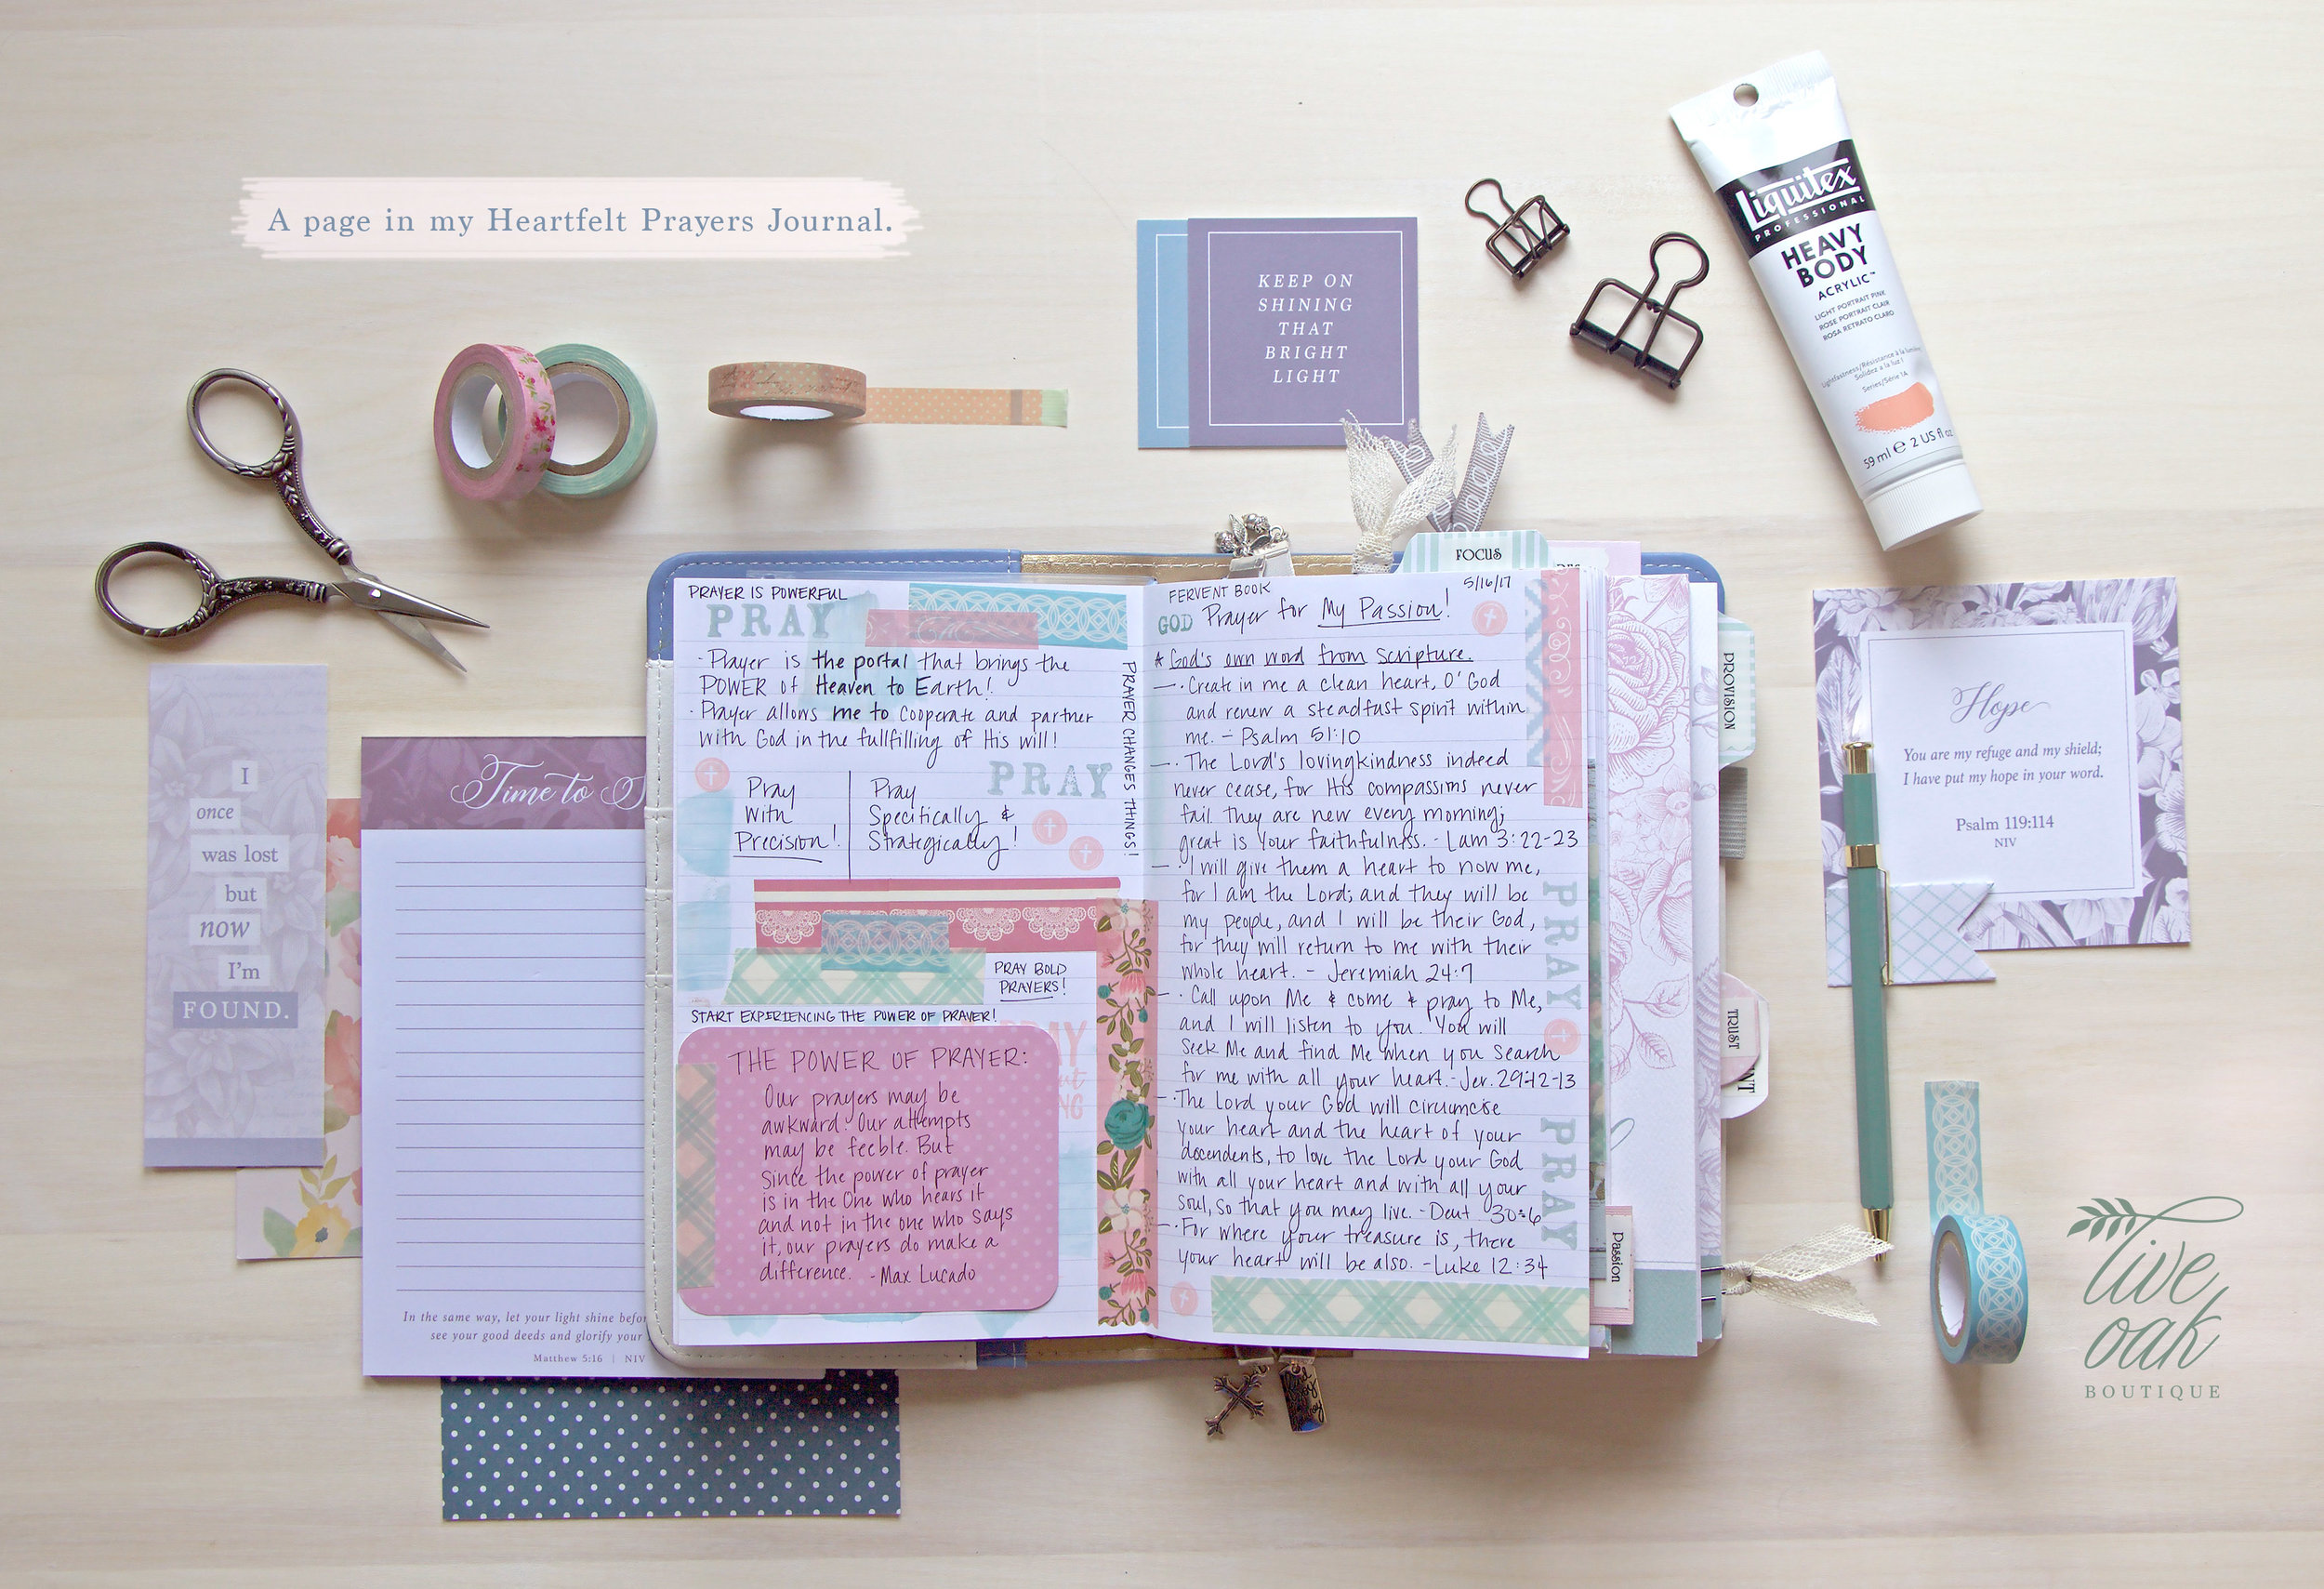 A page in my Heartfelt Prayers Journal.
KEEP ON
SHINING
THAT
BRIGHT
LIGHT
Liquitex
PROFESSIONAL
HEAVY
BODY
ACRYLIC™
LIGHT PORTRAIT PINK
ROSE PORTRAIT CLAIR
ROSA RETRATO CLARO
Lightfastness/Résistance à la lumière
Solidez a la luz I
Series/Série 1A
59 ml e 2 US fl oz
I
once
was lost
but
now
I'm
FOUND.
Time to
In the same way, let your light shine
see your good deeds and glorify your
Matthew 5:16 | NIV
PRAYER IS POWERFUL
PRAY
· Prayer is the portal that brings the
POWER of Heaven to Earth!
· Prayer allows me to cooperate and partner
with God in the fullfilling of His will!
PRAYER CHANGES THINGS!
PRAY
Pray
With
Precision!
Pray
Specifically &
Strategically!
PRAY BOLD
PRAYERS!
START EXPERIENCING THE POWER OF PRAYER!
THE POWER OF PRAYER:
Our prayers may be
awkward. Our attempts
may be feeble. But
since the power of prayer
is in the One who hears it
and not in the one who says
it, our prayers do make a
difference. - Max Lucado
FOCUS
FERVENT BOOK
5/16/17
GOD Prayer for My Passion!
* God's own word from Scripture.
— · Create in me a clean heart, O' God
and renew a steadfast spirit within
me. - Psalm 51:10
— · The Lord's lovingkindness indeed
never cease, for His compassions never
fail. They are new every morning;
great is Your faithfulness. - Lam 3:22-23
— · I will give them a heart to now me,
for I am the Lord; and they will be
my people, and I will be their God,
for they will return to me with their
whole heart. - Jeremiah 24:7
— · Call upon Me & come & pray to Me,
and I will listen to you. You will
seek Me and find Me when you search
for me with all your heart. - Jer. 29:12-13
— · The Lord your God will circumcise
your heart and the heart of your
descendents, to love the Lord your God
with all your heart and with all your
soul, so that you may live. - Deut 30:6
— · For where your treasure is, there
your heart will be also. - Luke 12:34
PRAY
PRAY
PROVISION
TRUST
Passion
Hope
You are my refuge and my shield;
I have put my hope in your word.
Psalm 119:114
NIV
live
oak
BOUTIQUE